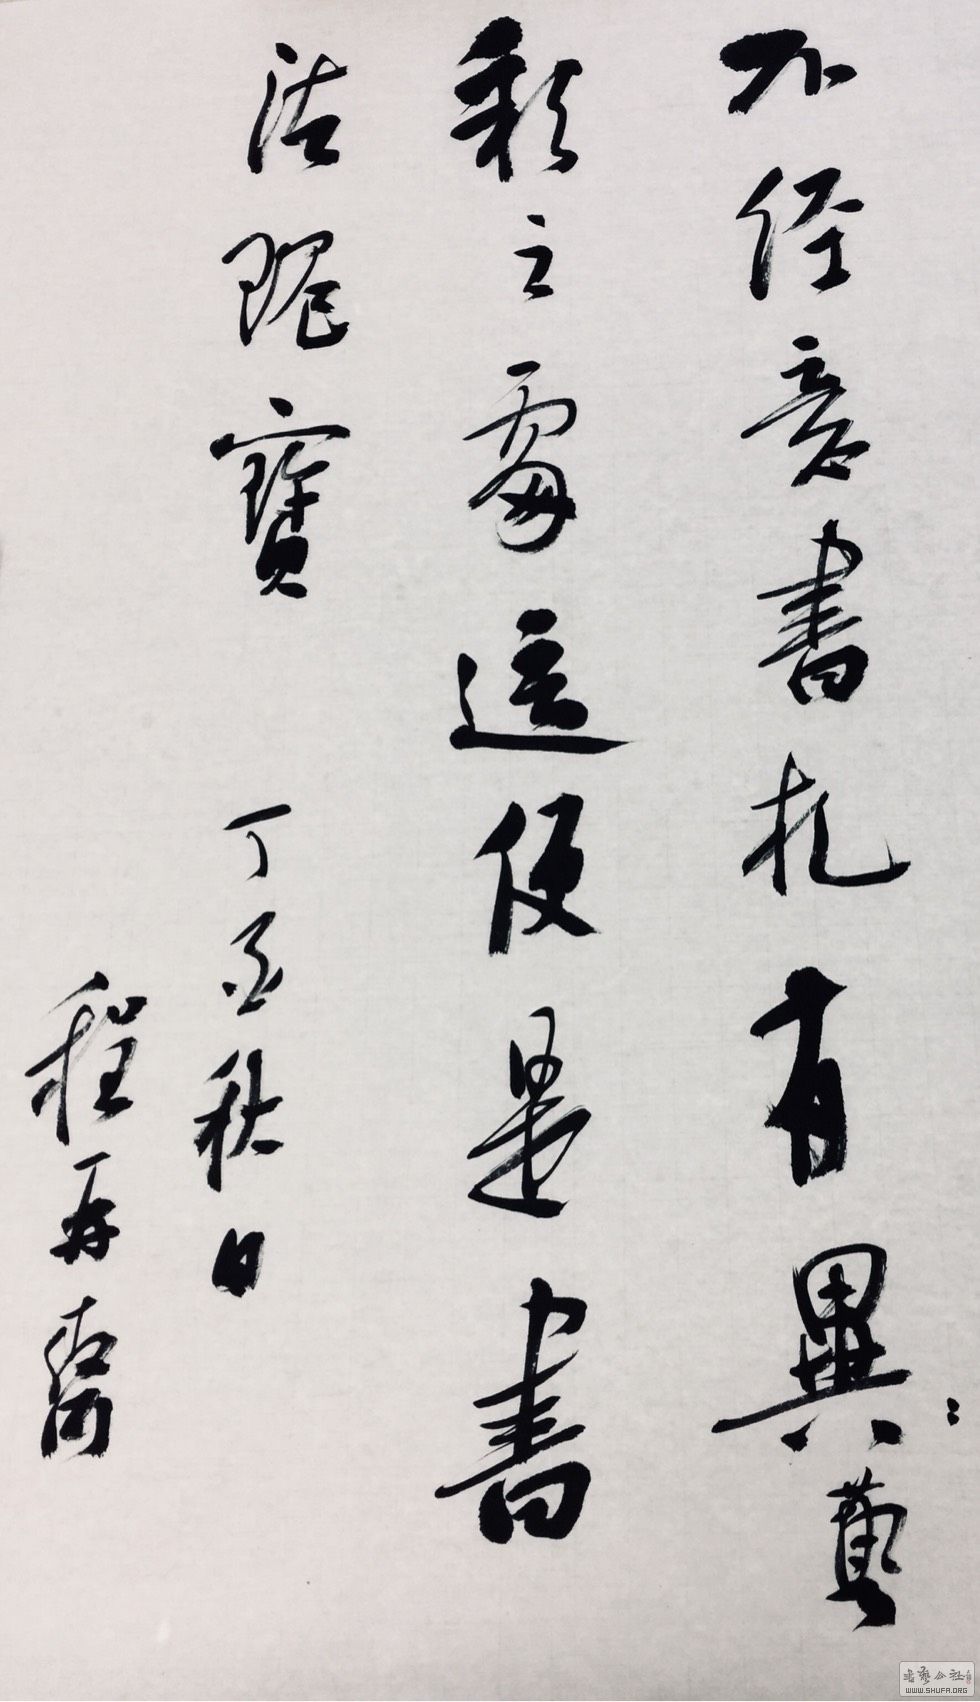 不經意書札有異藝
彩之處這便是書
法瑰寶 丁酉秋日
程再
書藝公社
WWW.SHUFA.ORG